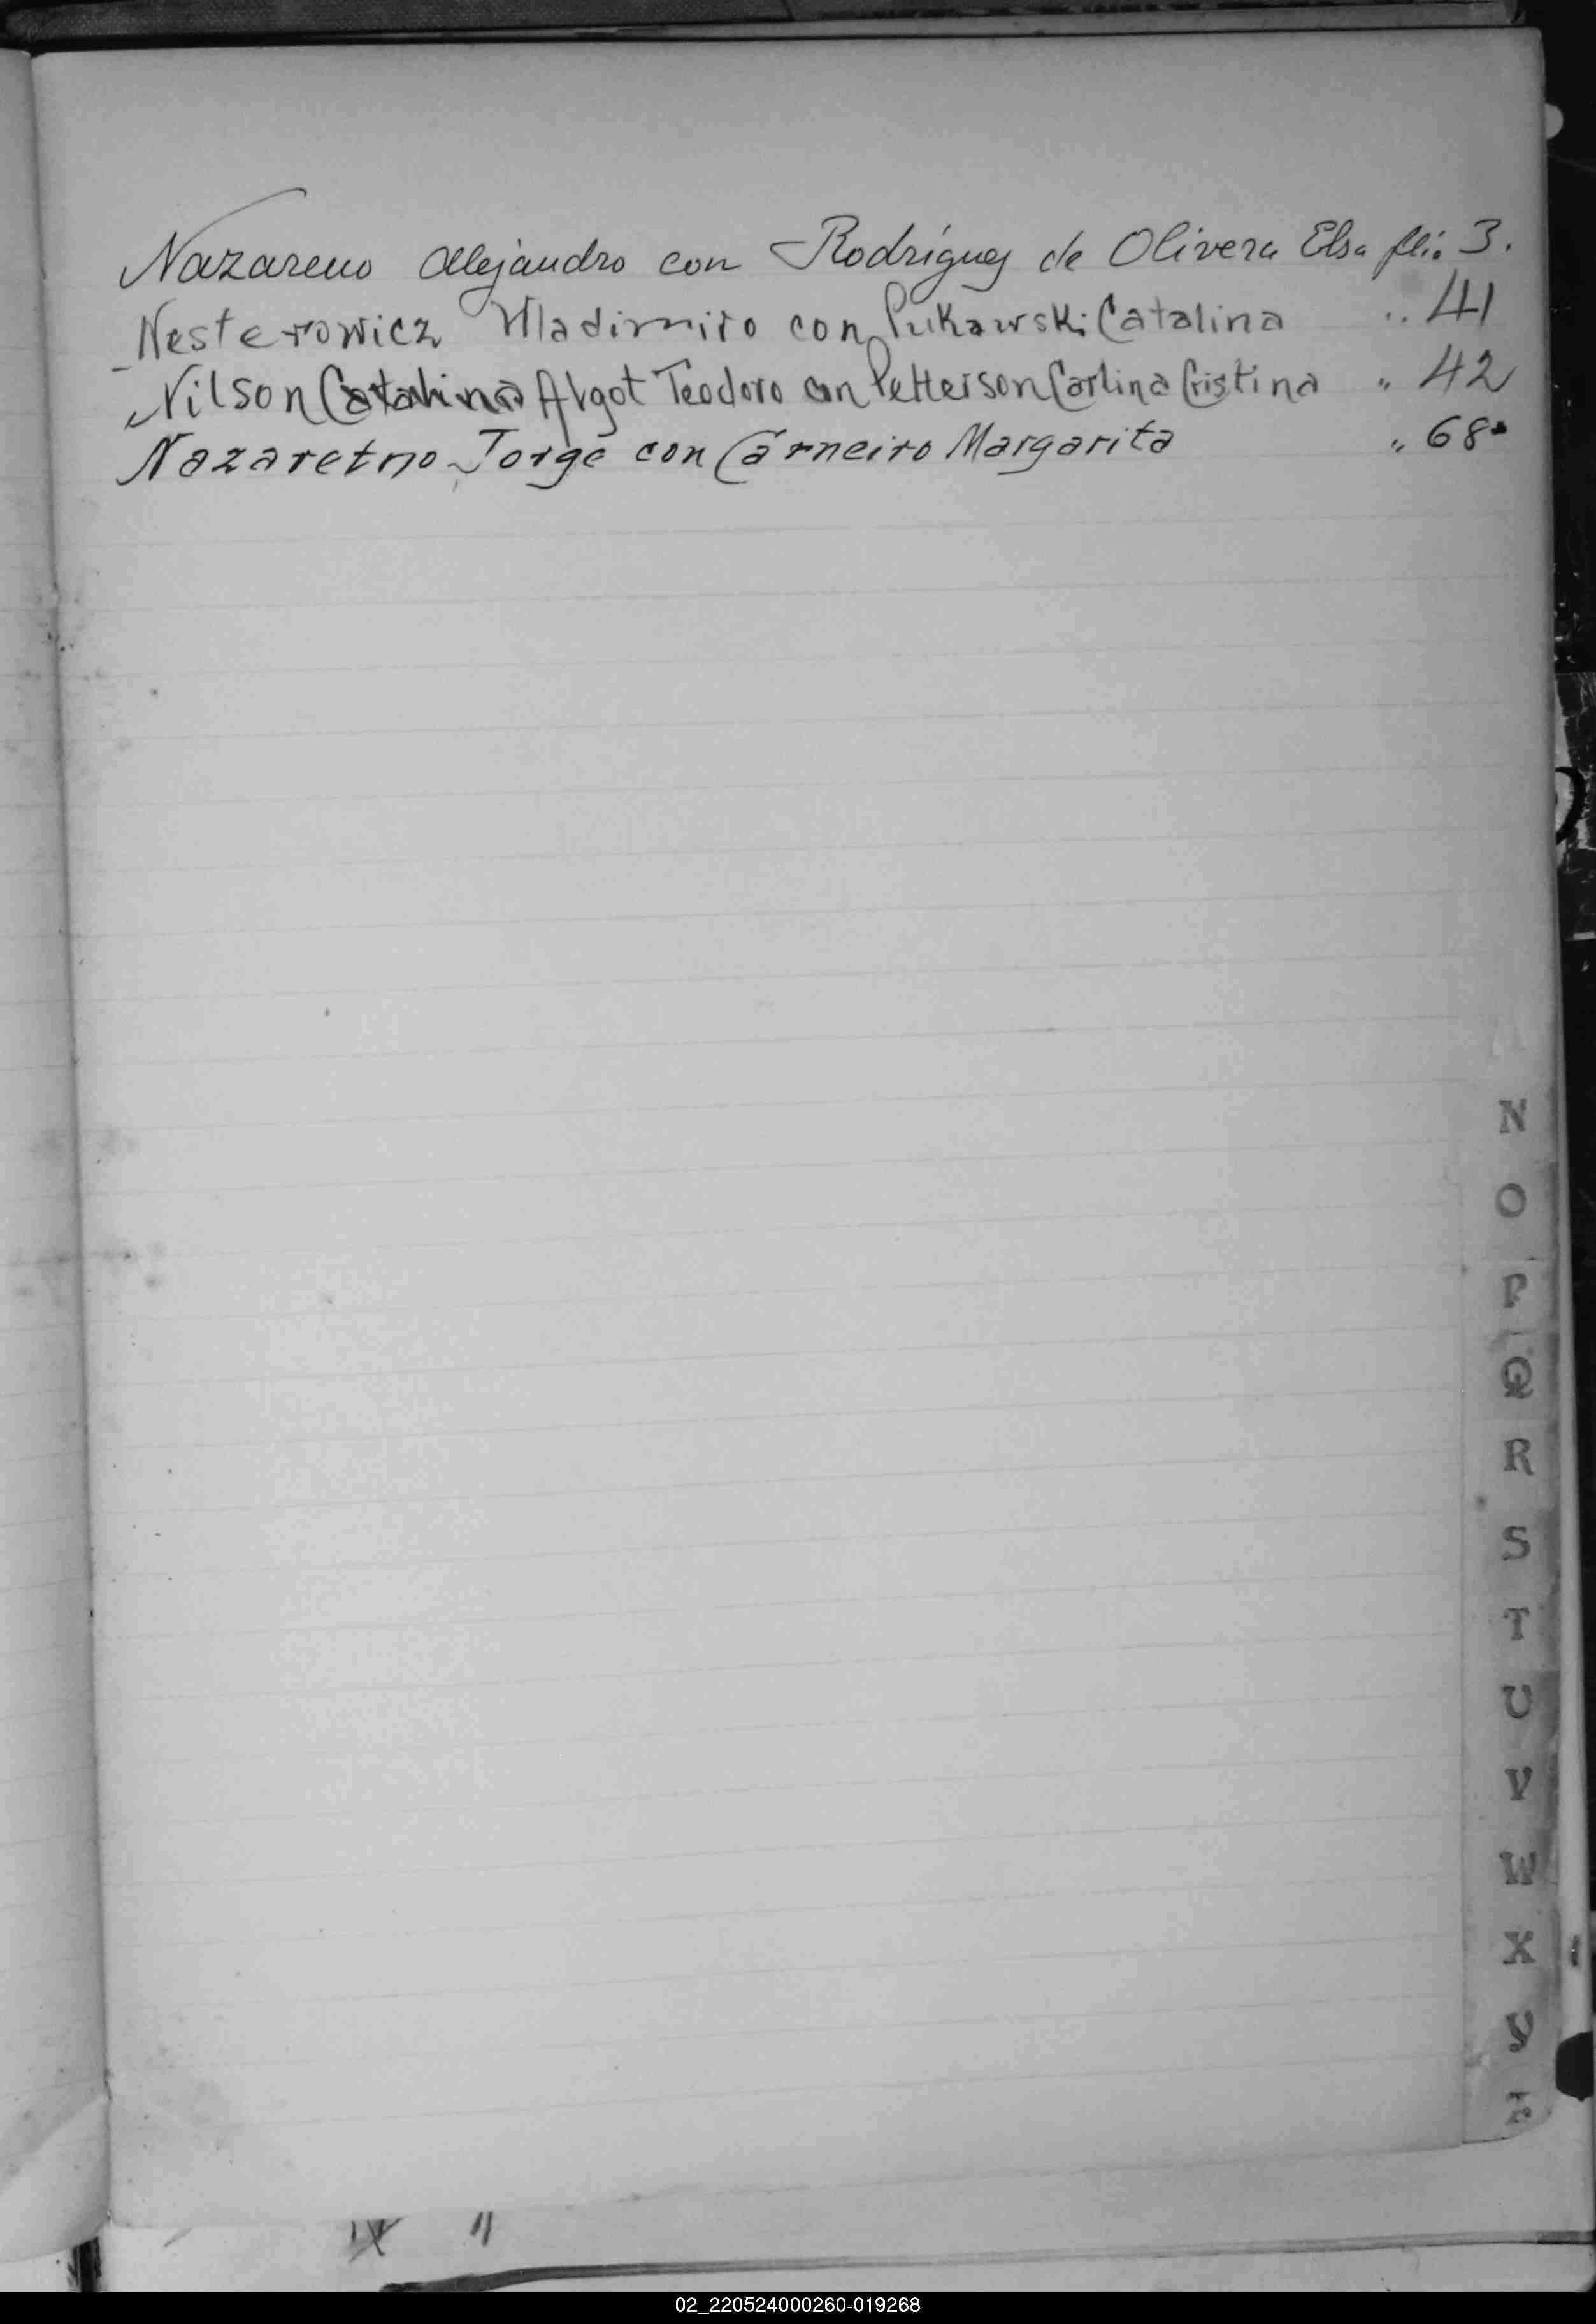 Nazareno Alejandro con Rodríguez de Olivera Elsa flio 3.
Nesterowicz Vladimiro con Pukawski Catalina " 41
Nilson Catalina Algot Teodoro con Petterson Carlina Cristina " 42
Nazaretno Jorge con Carneiro Margarita " 68
N
O
P
Q
R
S
T
U
V
W
X
Y
Z
02_220524000260-019268